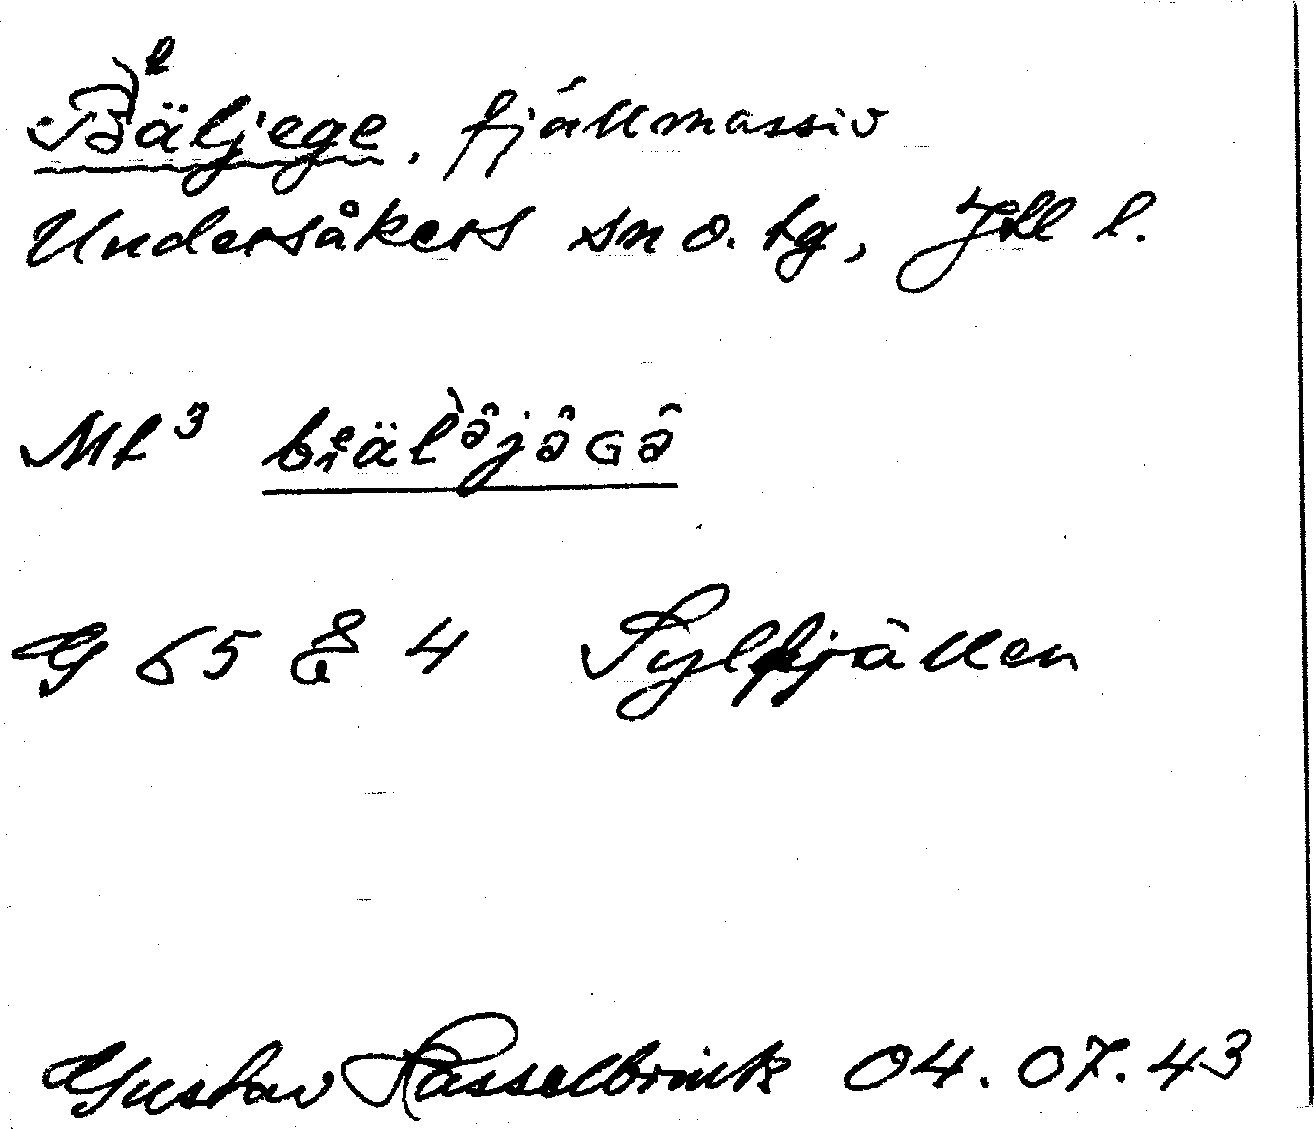 Bäljege, fjällmassiv
Undersåkers sn o. tg, Jtl l.
Mt³
G 65 & 4 Sylfjällen
Gustav Hasselbrink 04.07.43